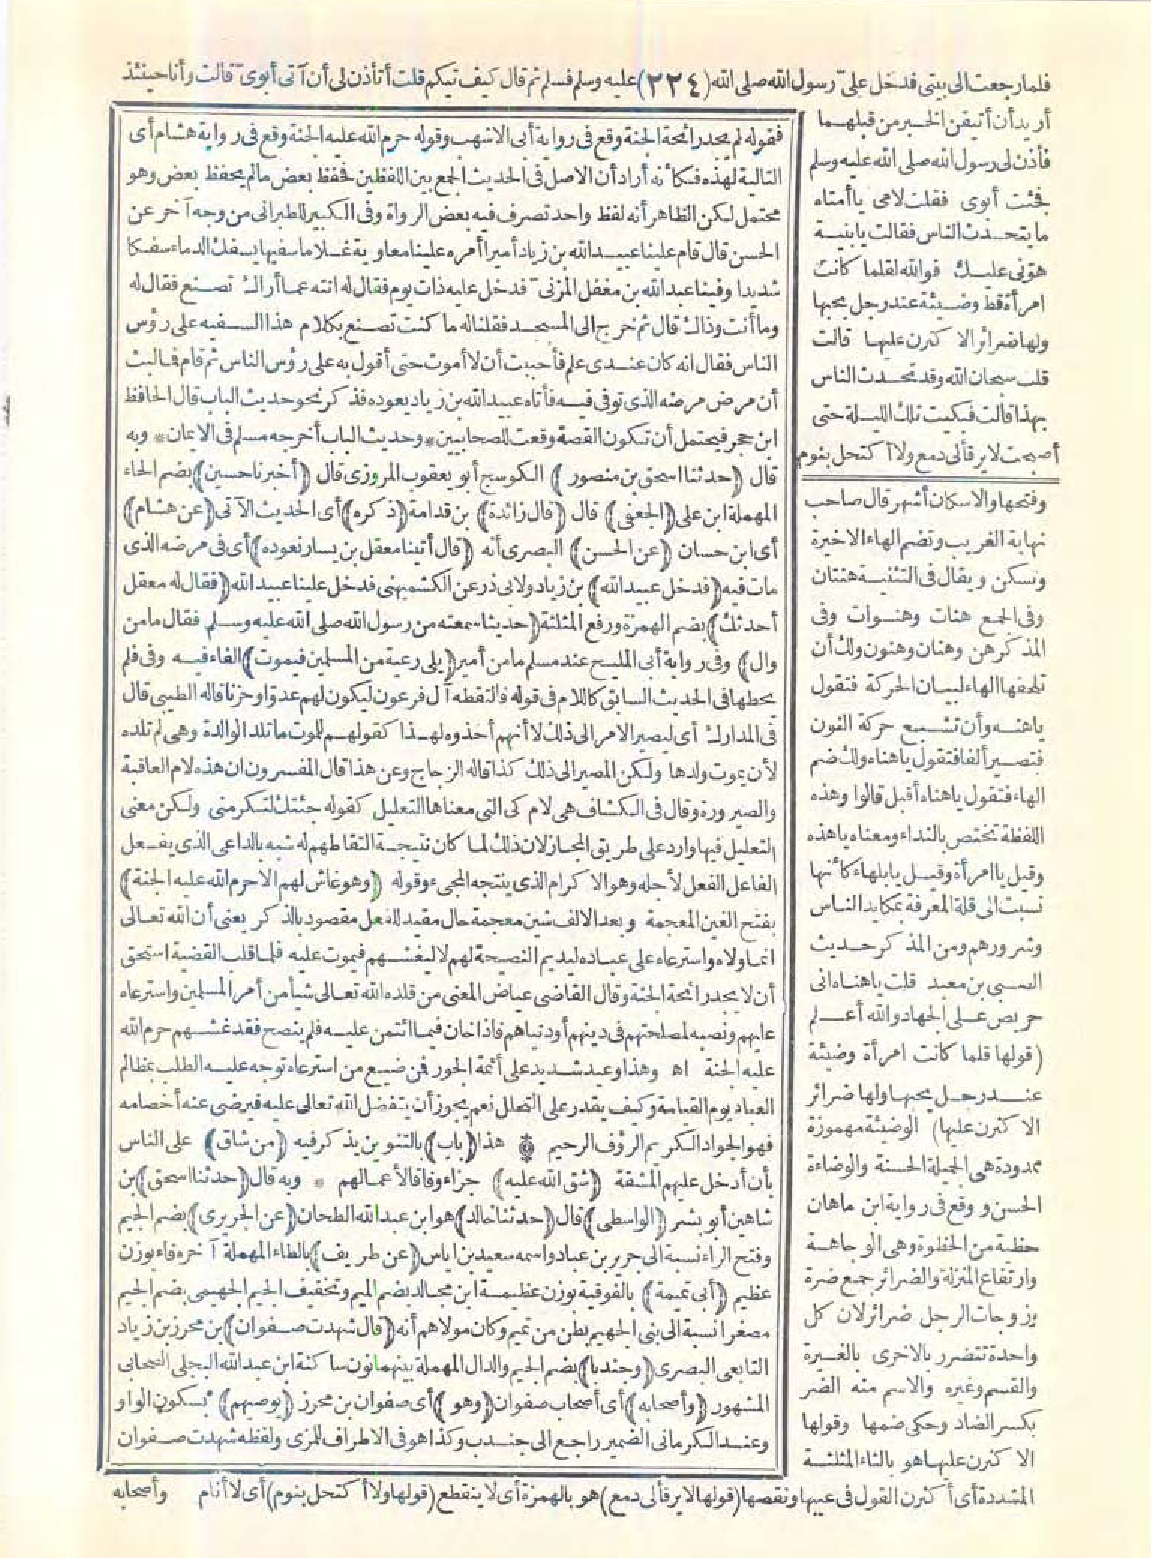 فلما رجعت الى بيتى فدخل علىّ رسول الله صلى الله (٢٢٤) عليه وسلم فسلم ثم قال كيف تيكم قلت أتأذن لى أن آتى أبوىّ قالت وأنا حينئذ
أريد أن أتيقن الخبر من قبلهما
فأذن لى رسول الله صلى الله عليه وسلم
فجئت أبوى فقلت لامى يا أمتاه
ما يتحدث الناس فقالت يا بنية
هوّنى عليك فوالله لقلما كانت
امرأة قط وضيئة عند رجل يحبها
ولها ضرائر الا كثرن عليها قالت
قلت سبحان الله وقد تحدث الناس
بهذا قالت فبكيت تلك الليلة حتى
أصبحت لا يرقألى دمع ولا أكتحل بنوم
وفتحها والاسكان أشهر قال صاحب
نهاية الغريب وتضم الهاء الاخيرة
وتسكن ويقال فى التثنية هنتان
وفى الجمع هنات وهنوات وفى
المذكر هن وهنان وهنون ولك أن
تلحقها الهاء لبيان الحركة فتقول
ياهنه وأن تشبع حركة النون
فتصير ألفا فتقول ياهناه ولك ضم
الهاء فتقول ياهناه أقبل قالوا وهذه
اللفظة تختص بالنداء ومعناه ياهذه
وقيل يا امرأة وقيل يا بلهاء كأنها
نسبت الى قلة المعرفة بمكايد الناس
وشرورهم ومن المذكر حديث
الصبى بن معبد قلت ياهناه انى
حريص على الجهاد والله أعلم
(قولها قلما كانت امرأة وضيئة
عند رجل يحبها ولها ضرائر
الا كثرن عليها) الوضيئة مهموزة
ممدودة هى الجميلة الحسنة والوضاءة
الحسن ووقع فى رواية ابن ماهان
حظية من الحظوة وهى الوجاهة
وارتفاع المنزلة والضرائر جمع ضرة
وزوجات الرجل ضرائر لان كل
واحدة تتضرر بالاخرى بالغيرة
والقسم وغيره والاسم منه الضر
بكسر الضاد وحكى ضمها وقولها
الا كثرن عليها هو بالثاء المثلثة
المشددة أى أكثرن القول فى عيبها ونقصها (قولها لا يرقألى دمع) هو بالهمزة أى لا ينقطع (قولها ولا أكتحل بنوم) أى لا أنام
فقوله لم يجد رائحة الجنة وقع فى رواية أبى الاشهب وقوله حرم الله عليه الجنة وقع فى رواية هشام أى
التالية لهذه فكأنه أراد أن الاصل فى الحديث الجمع بين اللفظين فحفظ بعض مالم يحفظ بعض وهو
محتمل لكن الظاهر أنه لفظ واحد تصرف فيه بعض الرواة وفى الكبير للطبرانى من وجه آخر عن
الحسن قال قام علينا عبيد الله بن زياد أميرا أمره علينا معاوية غلاما سفيها يسفك الدماء سفكا
شديدا وفينا عبد الله بن مغفل المزنى فدخل عليه ذات يوم فقال له انته عما أراك تصنع فقال له
وما أنت وذاك قال ثم خرج الى المسجد فقلنا له ما كنت تصنع بكلام هذا السفيه على رؤس
الناس فقال انه كان عندى علم فأحببت أن لا أموت حتى أقول به على رؤس الناس ثم قام فما لبث
أن مرض مرضه الذى توفى فيه فأتاه عبيد الله بن زياد يعوده فذكر نحو حديث الباب قال الحافظ
ابن حجر فيحتمل أن تكون القصة وقعت للصحابيين * وحديث الباب أخرجه مسلم فى الايمان * وبه
قال (حدثنا اسحق بن منصور) الكوسج أبو يعقوب المروزى قال (أخبرنا حسين) بضم الحاء
المهملة ابن على (الجعفى) قال (قال زائدة) بن قدامة (ذكره) أى الحديث الآتى (عن هشام)
أى ابن حسان (عن الحسن) البصرى أنه (قال أتينا معقل بن يسار نعوده) أى فى مرضه الذى
مات فيه (فدخل عبيد الله) بن زياد ولابى ذر عن الكشميهنى فدخل علينا عبيد الله (فقال له معقل
أحدثك) بضم الهمزة ورفع المثلثة (حديثا سمعته من رسول الله صلى الله عليه وسلم فقال ما من
وال) وفى رواية أبى المليح عند مسلم ما من أمير (يلى رعية من المسلمين فيموت) الفاء فيه وفى فلم
يحطها فى الحديث السابق كاللام فى قوله فالتقطه آل فرعون ليكون لهم عدوّا وحزنا قاله الطيبى قال
فى المدارك أى ليصير الامر الى ذلك لا أنهم أخذوه لهذا كقولهم للموت ما تلد الوالدة وهى لم تلده
لأن يموت ولدها ولكن المصير الى ذلك كذا قاله الزجاج وعن هذا قال المفسرون ان هذه لام العاقبة
والصيرورة وقال فى الكشاف هى لام كى التى معناها التعليل كقوله جئتك لتكرمنى ولكن معنى
التعليل فيها وارد على طريق المجاز لان ذلك لما كان نتيجة التقاطهم له شبه بالداعى الذى يفعل
الفاعل الفعل لأجله وهو الاكرام الذى ينتجه المجىء وقوله (وهو غاش لهم الا حرم الله عليه الجنة)
بفتح الغين المعجمة وبعد الالف شين معجمة حال مقيد للفعل مقصود بالذكر يعنى أن الله تعالى
انما ولاه واسترعاه على عباده ليديم النصيحة لهم لا ليغشهم فيموت عليه فلما قلب القضية استحق
أن لا يجد رائحة الجنة وقال القاضى عياض المعنى من قلده الله تعالى شيأ من أمر المسلمين واسترعاه
عليهم ونصبه لمصلحتهم فى دينهم أو دنياهم فاذا خان فيما ائتمن عليه فلم ينصح فقد غشهم حرم الله
عليه الجنة اه وهذا وعيد شديد على أئمة الجور فمن ضيع من استرعاه توجه عليه الطلب بمظالم
العباد يوم القيامة وكيف يقدر على التحلل نعم يجوز أن يتفضل الله تعالى عليه فيرضى عنه أخصامه
فهو الجواد الكريم الرؤف الرحيم * هذا (باب) بالتنوين يذكر فيه (من شاق) على الناس
بأن أدخل عليهم المشقة (شق الله عليه) جزاء وفاقا لأعمالهم * وبه قال (حدثنا اسحق) بن
شاهين أبو بشر (الواسطى) قال (حدثنا خالد) هو ابن عبد الله الطحان (عن الجريرى) بضم الجيم
وفتح الراء نسبة الى جرير بن عباد واسمه سعيد بن اياس (عن طريف) بالطاء المهملة آخره فاء بوزن
عظيم (أبى تميمة) بالفوقية بوزن عظيمة ابن مجالد بضم الميم وتخفيف الجيم الجهيمى بضم الجيم
مصغرا نسبة الى بنى الجهيم بطن من تميم وكان مولاهم أنه (قال شهدت صفوان) بن محرز بن زياد
التابعى البصرى (وجندبا) بضم الجيم والدال المهملة بينهما نون ساكنة ابن عبد الله البجلى الصحابى
المشهور (وأصحابه) أى أصحاب صفوان (وهو) أى صفوان بن محرز (يوصيهم) بسكون الواو
وعند الكرمانى الضمير راجع الى جندب وكذا هو فى الاطراف للمزى ولفظه شهدت صفوان
وأصحابه